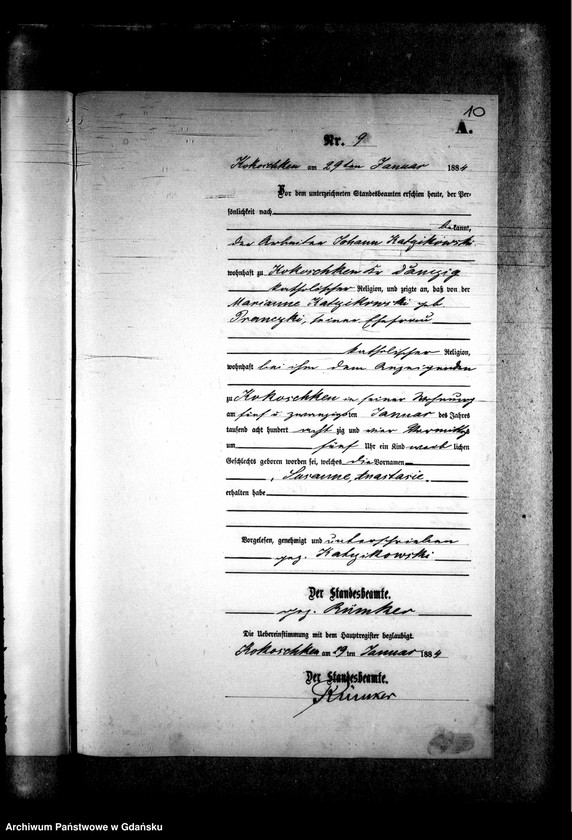 10
A.
Nr. 9
Kokoschken am 29ten Januar 1884
Vor dem unterzeichneten Standesbeamten erschien heute, der Per-
sönlichkeit nach
bekannt,
der Arbeiter Johann Katzikowski
wohnhaft zu Kokoschken Kr Danzig
katholischer Religion, und zeigte an, daß von der
Marianne Katzikowski geb
seiner Ehefrau
katholischer Religion,
wohnhaft bei ihm dem Anzeigenden
zu Kokoschken in seiner Wohnung
am fünf u zwanzigsten Januar des Jahres
tausend acht hundert acht zig und vier Vormittags
um fünf Uhr ein Kind weib lichen
Geschlechts geboren worden sei, welches die Vornamen
Susanne, Anastasie
erhalten habe
Vorgelesen, genehmigt und unterschrieben
gez. Katzikowski
Der Standesbeamte.
gez. Rümker
Die Uebereinstimmung mit dem Hauptregister beglaubigt.
Kokoschken am ten Januar 1884
Der Standesbeamte.
Rümker
Archiwum Państwowe w Gdańsku